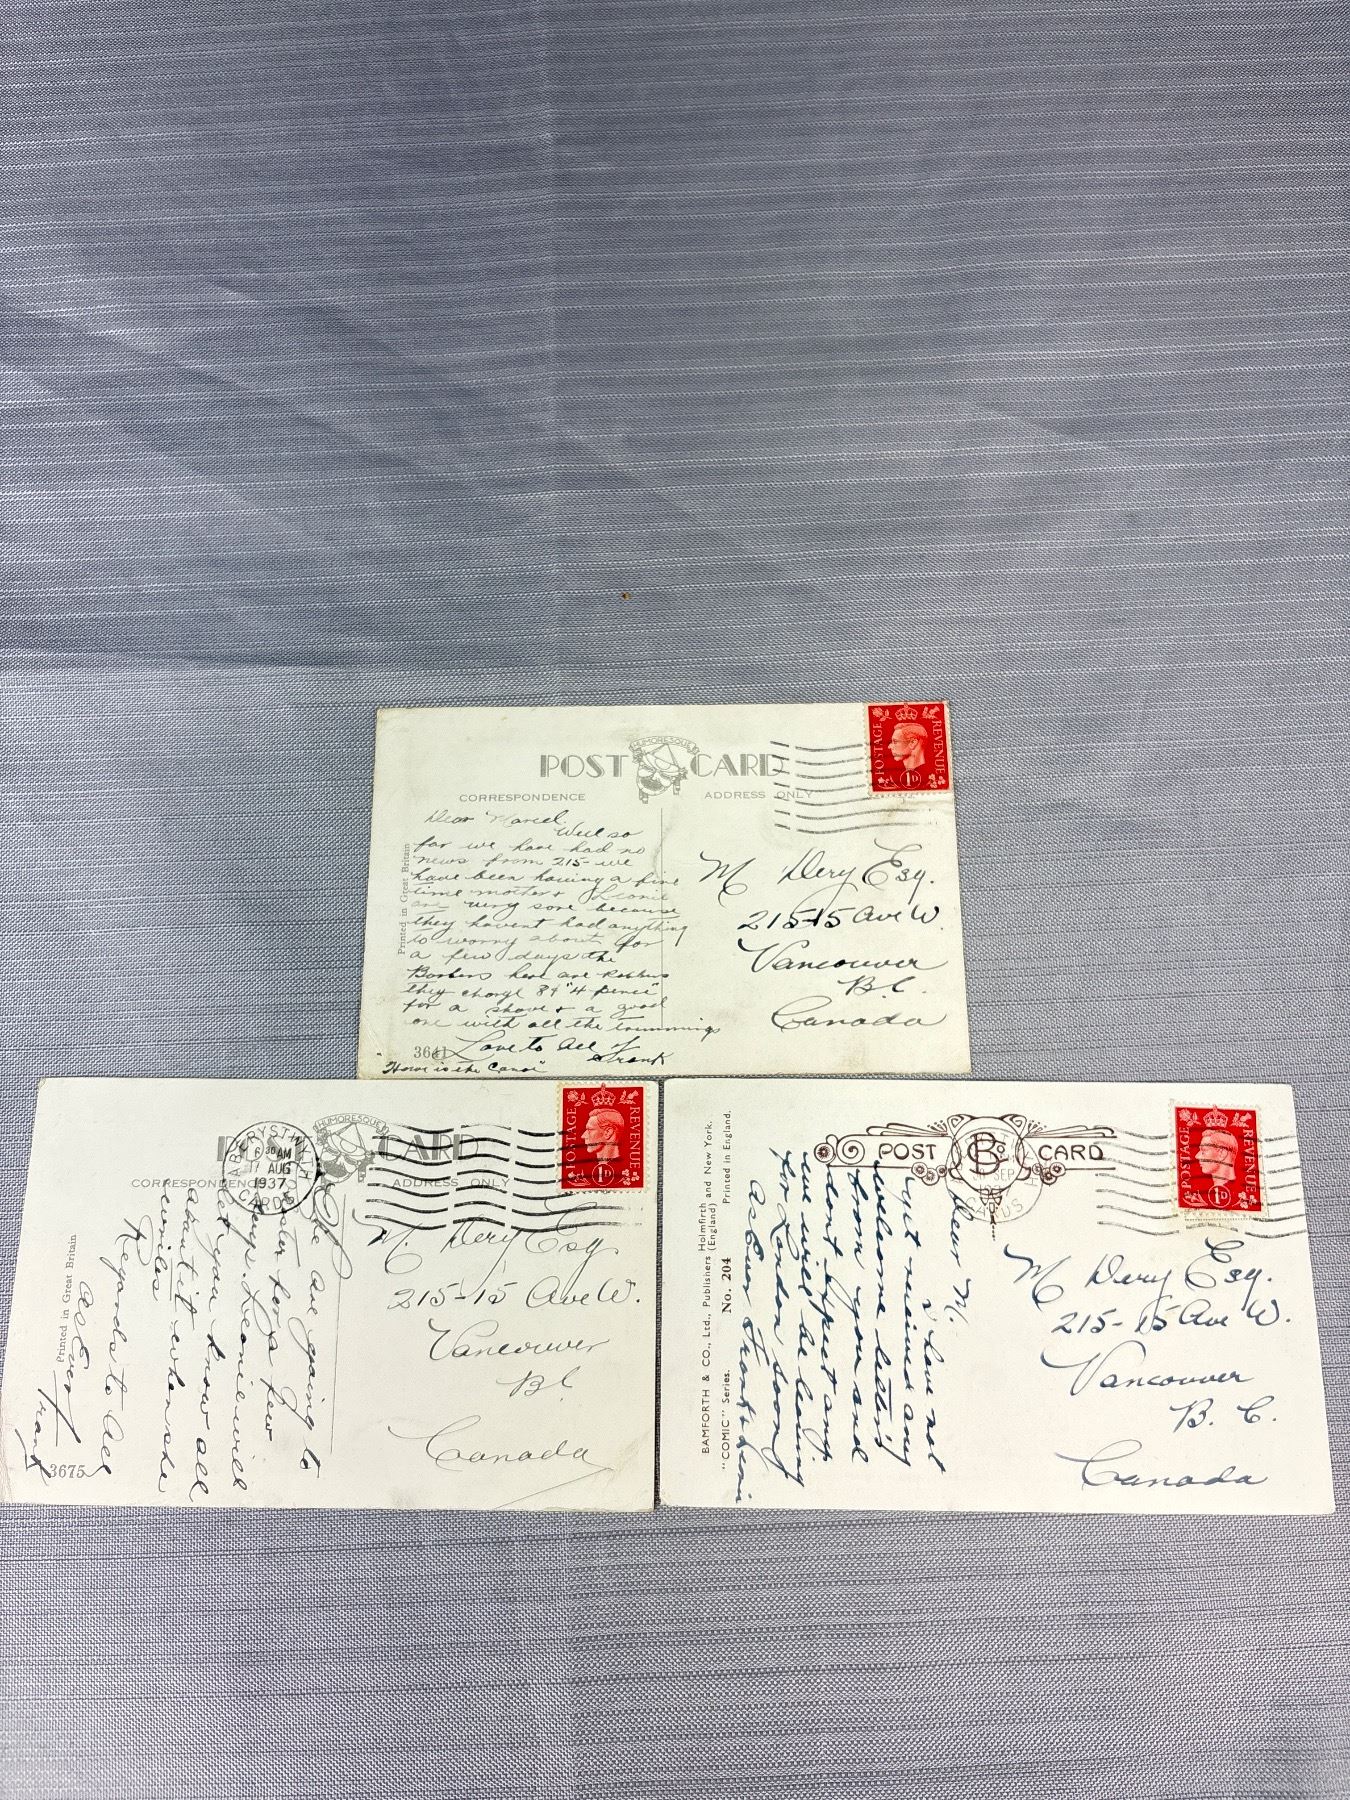 HUMORESQUE
POST CARD
CORRESPONDENCE
ADDRESS ONLY
POSTAGE REVENUE
1D
Printed in Great Britain
Dear Marcel.
Well so
far we have had no
news from 215 - we
have been having a fine
time mother & Leonie
are very sore because
they havent had anything
to worry about for
a few days the
Barbers here are Robbers
they charge 8¢ "4 pence"
for a shave & a good
one with all the trimmings
Love to All
Frank
"How is the Canoe"
3641
M Dery Esq.
215-15 Ave W.
Vancouver
B.C.
Canada
HUMORESQUE
POST CARD
CORRESPONDENCE
ADDRESS ONLY
ABERYSTWYTH
6 30 AM
17 AUG
1937
CARDS
POSTAGE REVENUE
1D
Printed in Great Britain
We are going to
for a few
days. Leonie will
let you know all
about it when she
writes
Regards to All
As Ever
Frank
3675
M. Dery Esq.
215-15 Ave W.
Vancouver
BC
Canada
BAMFORTH & CO., Ltd., Publishers Holmfirth (England) and New York.
"COMIC" Series. No. 204 Printed in England.
POST CARD
B Co
SEP
CARDS
POSTAGE REVENUE
1D
Dear M.
I have not
yet received any
welcome letters
from you and
dont expect any
we will be leaving
for London soon
As Ever Frank
M Dery Esq.
215-15 Ave W.
Vancouver
B. C.
Canada